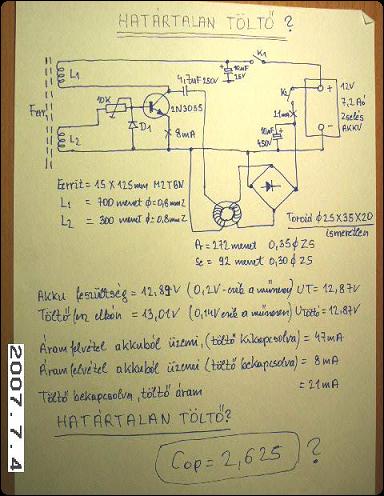 HATÁRTALAN TÖLTŐ ?
L1
4,7uF 250V
10uF
25V
K1
Ferr.
10K
2N3055
D1
8mA
L2
K2
21mA
10uF
450V
12V
7,2 Aó
Zselés
AKKU
Ferrit = 15 X 125mm M2TBN
L1 = 700 menet ϕ=0,8mm2
L2 = 300 menet ϕ=0,8mm2
Toroid ϕ25X35X20
ismeretlen
Pr = 272 menet 0,35ϕ ZS
Se = 92 menet 0,30ϕ ZS
Akku feszültség = 12,89V (0,2V-
UT= 12,87V
= 13,01V (0,14V-
= 12,87V
Áramfelvétel akkuból üzemi, (töltő kikapcsolva) = 47mA
Áramfelvétel akkuból üzemi (töltő bekapcsolva) = 8mA
Töltő bekapcsolva, töltő áram = 21mA
HATÁRTALAN TÖLTŐ?
Cop = 2,625 ?
2007. 7. 4